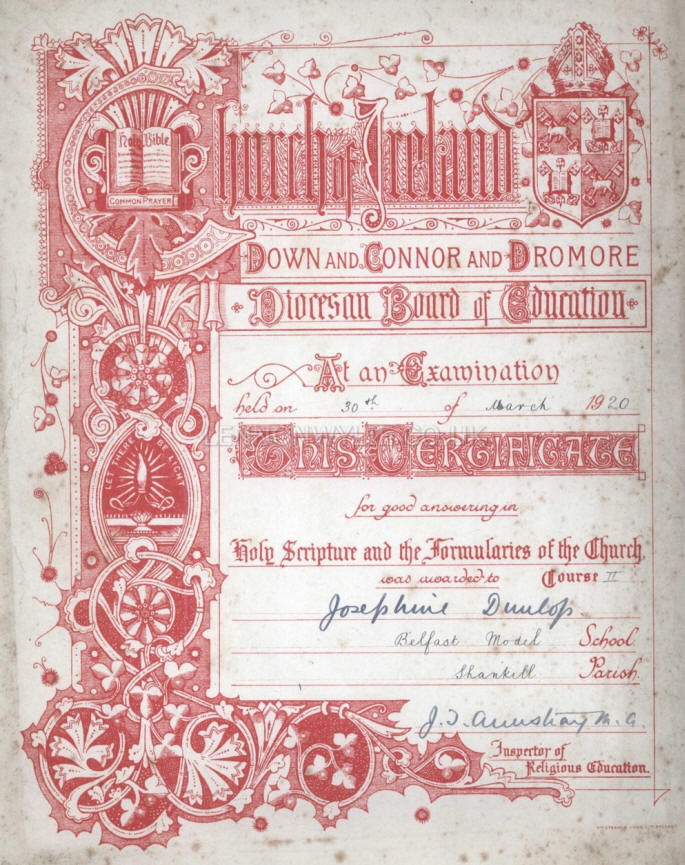 Holy Bible
COMMON PRAYER
Church of Ireland
DOWN AND CONNOR AND DROMORE
Diocesan Board of Education
At an Examination
held on 30th of March 1920
LENNONWYLIE.CO.UK
THIS CERTIFICATE
LET THERE BE LIGHT
for good answering in
Holy Scripture and the Formularies of the Church,
was awarded to Course II
Josephine Dunlop
Belfast Model School
Shankill Parish.
J. J. Armstrong M.A.
Inspector of
Religious Education.